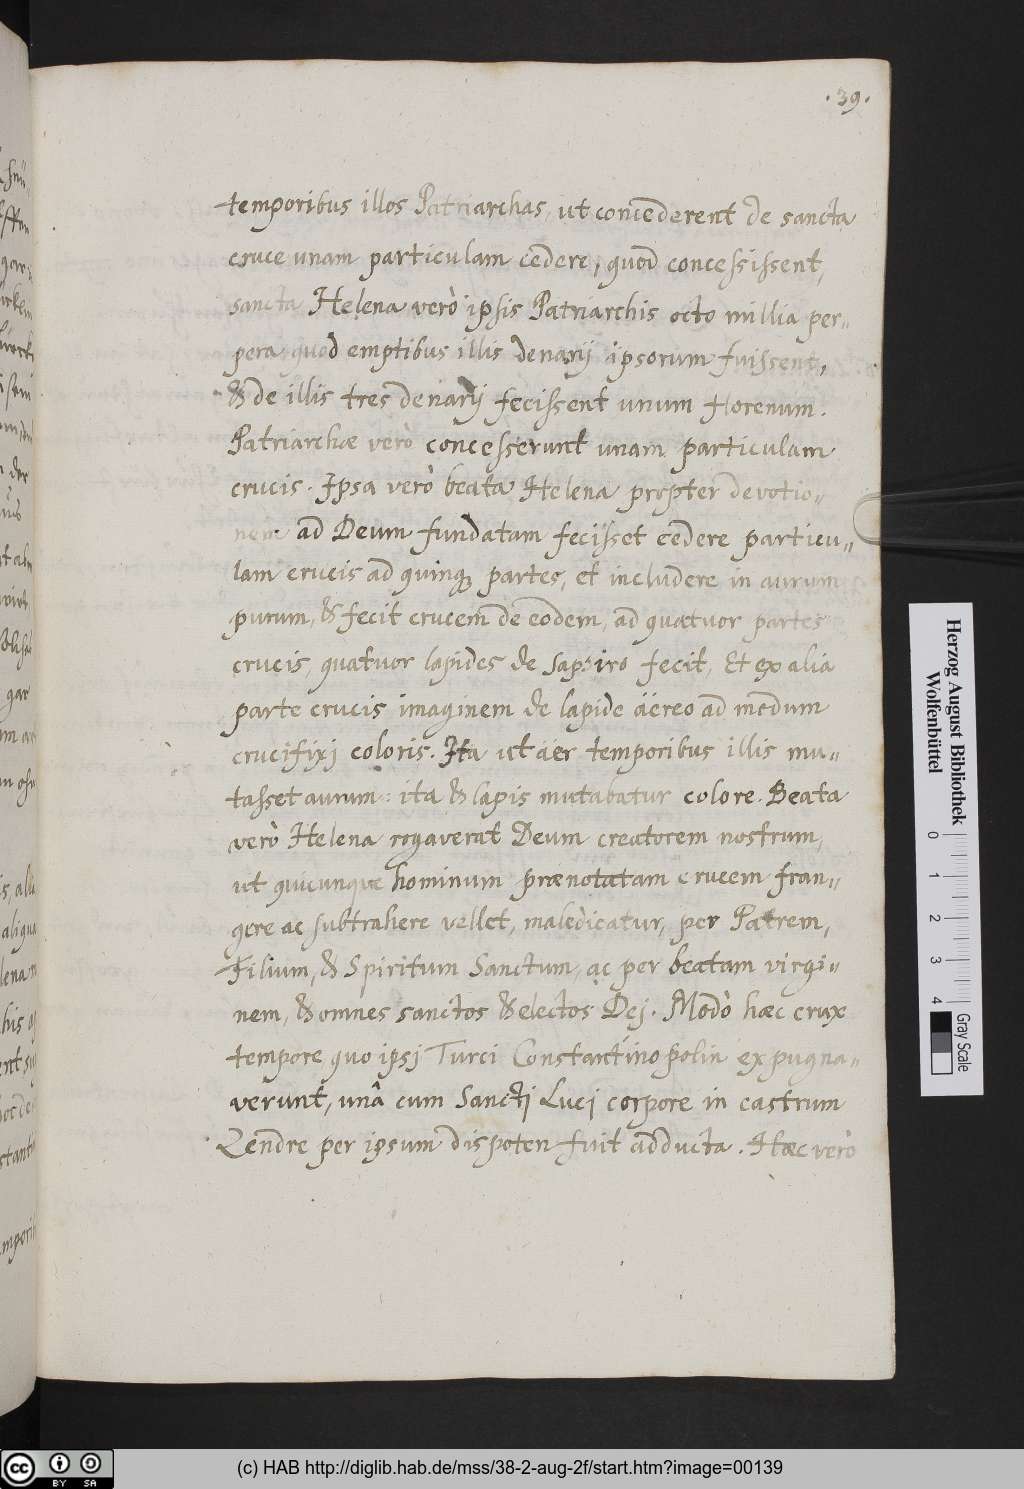 .39.
temporibus illos Patriarchas, ut concederent de sancta
cruce unam particulam cedere, quod concessissent,
sancta Helena verò ipsis Patriarchis octo millia per„
pera, quod emptibus illis denarij ipsorum fuissent,
& de illis tres denarij fecissent unum florenum.
Patriarchæ verò concesserunt unam particulam
crucis. Ipsa verò beata Helena propter devotio„
nem ad Deum fundatam fecisset cedere particu„
lam crucis ad quinq́ partes, et includere in aurum
purum, & fecit crucem de eodem, ad quatuor partes
crucis, quatuor lapides de sapiro fecit, Et ex alia
parte crucis imaginem de lapide äereo ad modum
crucifixi coloris. Ita ut äer temporibus illis mu„
tasset aurum: ita & lapis mutabatur colore. Beata
verò Helena rogaverat Deum creatorem nostrum,
ut quicunque hominum prænotatam crucem fran„
gere ac subtrahere vellet, maledicatur, per Patrem,
Filium, & Spiritum Sanctum, ac per beatam virgi„
nem, & omnes sanctos & electos Dej. Modò hæc crux
tempore, quo ipsj Turci Constantinopolin expugna„
verunt, unâ cum Sanctj Lucj corpore in castrum
Zendre per ipsum dispoten fuit adducta. Hæc verò
Herzog August Bibliothek
Wolfenbüttel
0 1 2 3 4
Gray Scale
cc BY SA
(c) HAB http://diglib.hab.de/mss/38-2-aug-2f/start.htm?image=00139